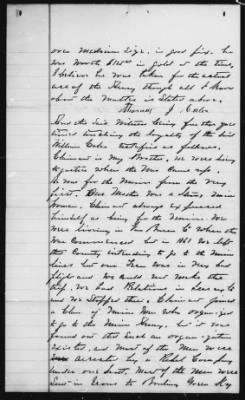 over medium size, in good fix. he
was worth $125.00 in gold at the time,
I believe he was taken for the actual
use of the Army though all I know
about the matter is stated above.
J. Cabe
And the said Witness being further ques
tioned touching the loyalty of the said
William Cabe testifies as follows.
Claimant is my Brother, we were living
together when the War Came up.
He was for the Union from the very
first. Our Mother was a strong Union
Woman. Claimant always expressed
himself as being for the Union. We
were living in Van Buren Co when the
War Commenced but in 1861 we left
that County intending to go to the Union
lines but our Team was in very bad
plight and we could not make the
trip. We had Relations in Searcy Co
and we stopped there. Claimant joined
a Clan of Union Men who organized
to go to the Union Army. but it was
found out that such an organization
existed, and most of the Men were
arrested by a Rebel Company
under one Scott, Most of the Men were
sent in Irons to Bowling Green Ky